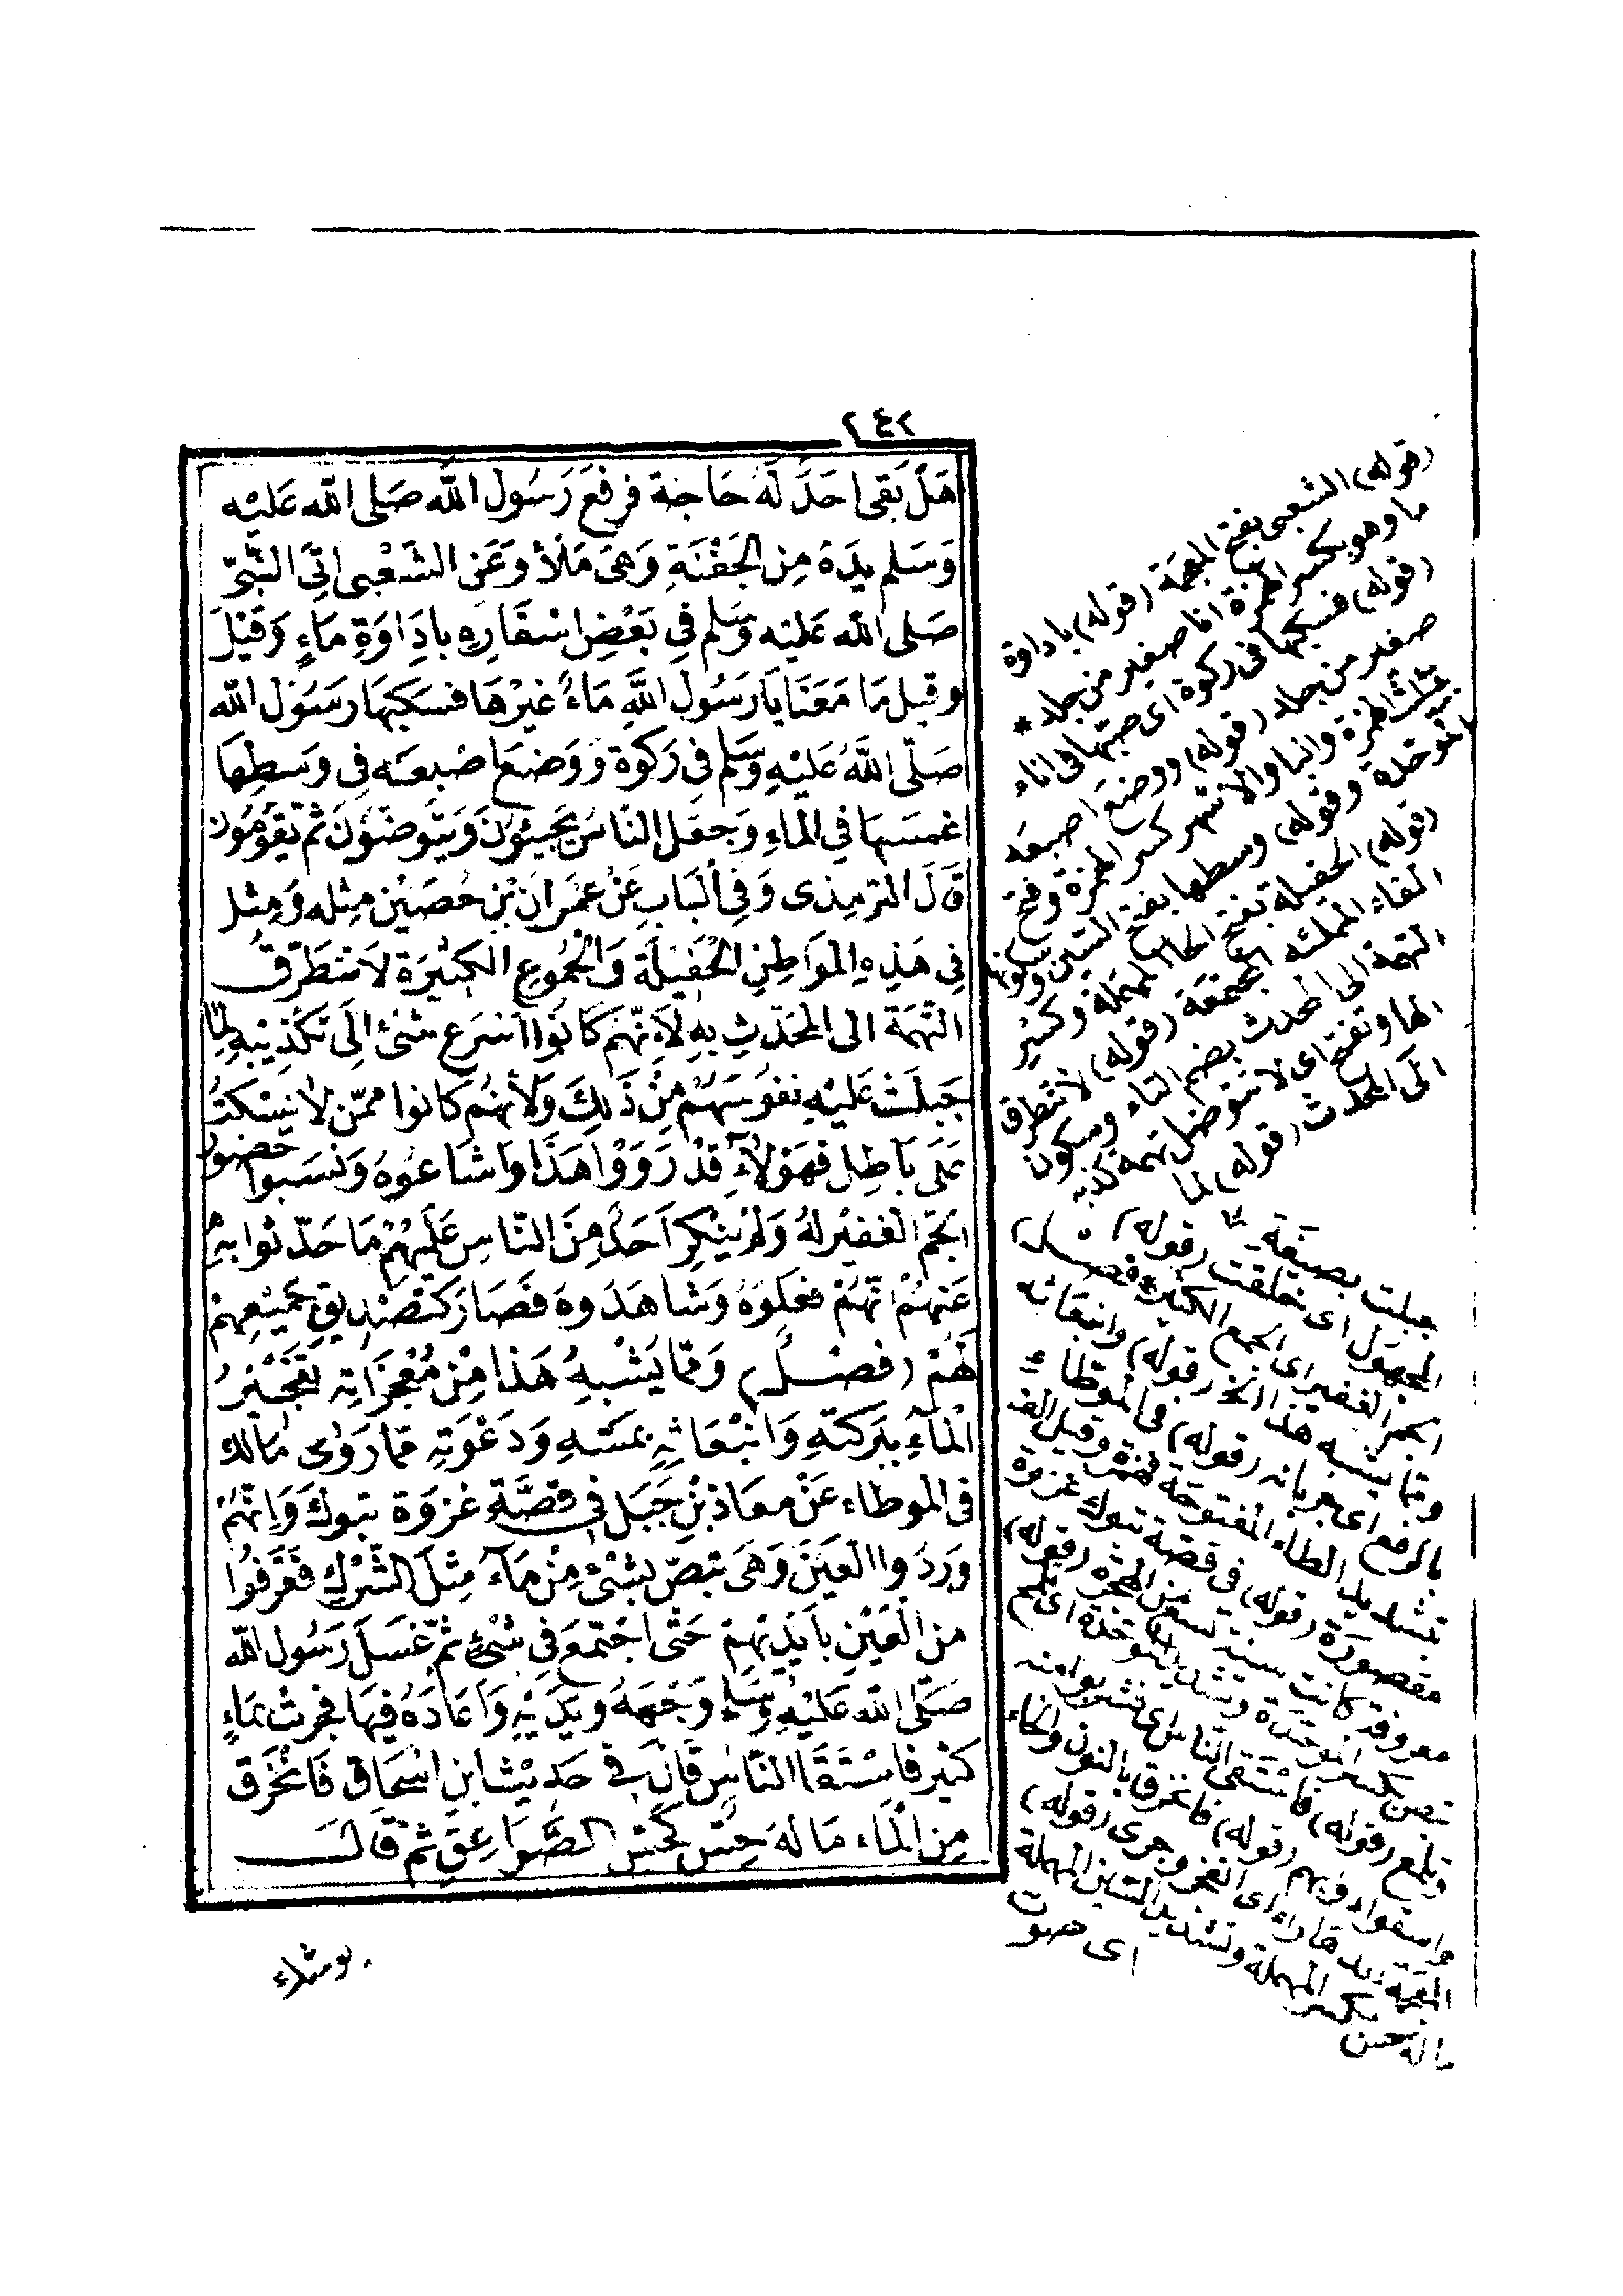 ٢٤٢
هَلْ بَقِىَ اَحَدٌ لَهُ حَاجَة فرفَعَ رَسُولُ اللّٰه صَلى اللّٰه عَليْه
وَسَلم يدَهُ مِن الجَفْنَةِ وَهىَ مَلأ وَعَن الشَعْبى اتِىَ النَّبىّ
صَلى اللّٰه عَليْه وَسَلم فِي بَعْضِ اسْفَارِهِ بادَاوَةِ مَاءٍ وَقيْلَ
وقيل مَا مَعَنَا يَا رَسُولَ اللَّهِ مَاءٌ غيْرْهَا فسَكبَهَا رَسُوْل اللّٰه
صَلّى اللّٰهُ عَليْهِ وَسَلم فِى رَكْوَة وَوَضَعَ اصْبعَه فِى وَسَطِهَا
غمسَهَا فِي الْمَاءِ وَجعَل النَاسُ يَجَيئُونَ وَيتَوضّؤنَ ثمّ يَقومُونَ
قَالَ الترمِذى وَفِي الْبَاب عَنْ عمْرَان بْن حُصَيْن مِثله وَمِثل
فِى هَذِهِ المَوَاطِنِ الحَفِيْلَة وَالجُموُعِ الكثِيْرَة لاَ تتَطَرَّقُ
التّهمَة الى المحَدّثِ بهِ لاَنّهَم كَانوُا اسْرَع شئ الَى تكَذيْبهِ لِمَا
جَبلَتْ عَليْهِ نفوُسهُمْ مِنْ ذَلِكَ وَلأنهُم كَانوا ممّن لاَ يسْكتُ
عَلَى بَاطِل فهَؤلاَءِ قدْ رَوَوْا هَذَا وَاشاعُوهُ وَنسَبوا حُضورُ
الجَمّ الغفيْر لهُ وَلَمْ ينْكِر اَحَدٌ مِنَ النّاسِ عَلَيهُمْ مَا حَدّثوا بهِ
عَنهُمْ انّهُمْ فعَلوَهُ وَشاهَدُوهَ فَصَارَ كتَصْدِيق جَميْعِهمْ
لهُمْ (فَصْــل) وَممّا يَشْبهُ هَذا مِنْ مُعْجزَاتِه تَفَجْيرُ
الْمَآءِ ببَركتَهِ وَانبْعَاثهِ بمَسّهِ وَدَعْوَتهِ ممّا رَوٰى مَالك
فى الموطاء عَنْ معَاذ بْنِ جَبَل فِى قصَّةِ غزوَة تبوكَ وَانهُمْ
وَرَدُوا العَيَنَ وَهَىَ تبصّ بشْئ مِنْ مَآء مِثلَ الشّرَكِ فغَرَفُوا
من الْعَيْنِ بايْديْهِمْ حَتّى اجْتَمعَ فِى شْئ ثمّ غسَلَ رَسُول اللّٰه
صَلّى اللّٰه عَليْهِ وَسَلم وَجْهَهُ وَيَدَيْهِ وَاَعَادَهُ فيهَا فجرَت بمَاءٍ
كَثير فاسْتَقَا النّاس قَالَ فى حَدِيثْ ابن اسْحَاق فَانخْرَق
مِن الْمَاء مَا لَهُ حِسٌّ كَحِسِّ الصّوَاعِقِ ثمّ قَالَــ
يوشك
(قوله) الشعبى بفتح المعجمة (قوله) باداوة
ما وهو بكسر الهمزة انا صغير من جلد *
(قوله) فسكبها فى ركوة اى صبّها فى اناء
صغير من جلد (قوله) ووضع اصبعه
مثلث الهمزة والبا والاشهر كسر الهمزة وفتح
الموحّدة (وقوله) وسطها بفتح السّين وسكونها
(قوله) الحفيلة بفتح الحا المهملة وكسر
الفاء الممتلئه المجتمعة (قوله) لا تتطرق
التهمة الى المحدث بضم التاء وسكون
الها وتفتح اى لا تتوصل تهمة كذبه
الَى المحدث (قوله) لما
جبلت بصيغة
المجهَول اى خلقت (قوله)
الجم الغفير اى الجمع الكثير (فصـل)
ومما يشبه هذا الخ (قوله) وانبعاثه
بالرفع اى جريانه (قوله) فى الموطاء
بتشديد الطاء المفتوحة فهمزة وقيل الف
مقصورة (قوله) فى قصة تبوك غزوة
معروفة كانت سنة تسع من الهجرة (قوله)
تبص بكسر الموحّدة وتشديد المهملة اى تلمع
(قوله) فاستقى الناس اى شربوا منه
واسقوا دوابهم (قوله) فانخرق بالنون والخاء
المعجمة اى انفجر وجرى (قوله)
ما له حس بكسر المهملة وتشديد السّين المهملة
اى صوت